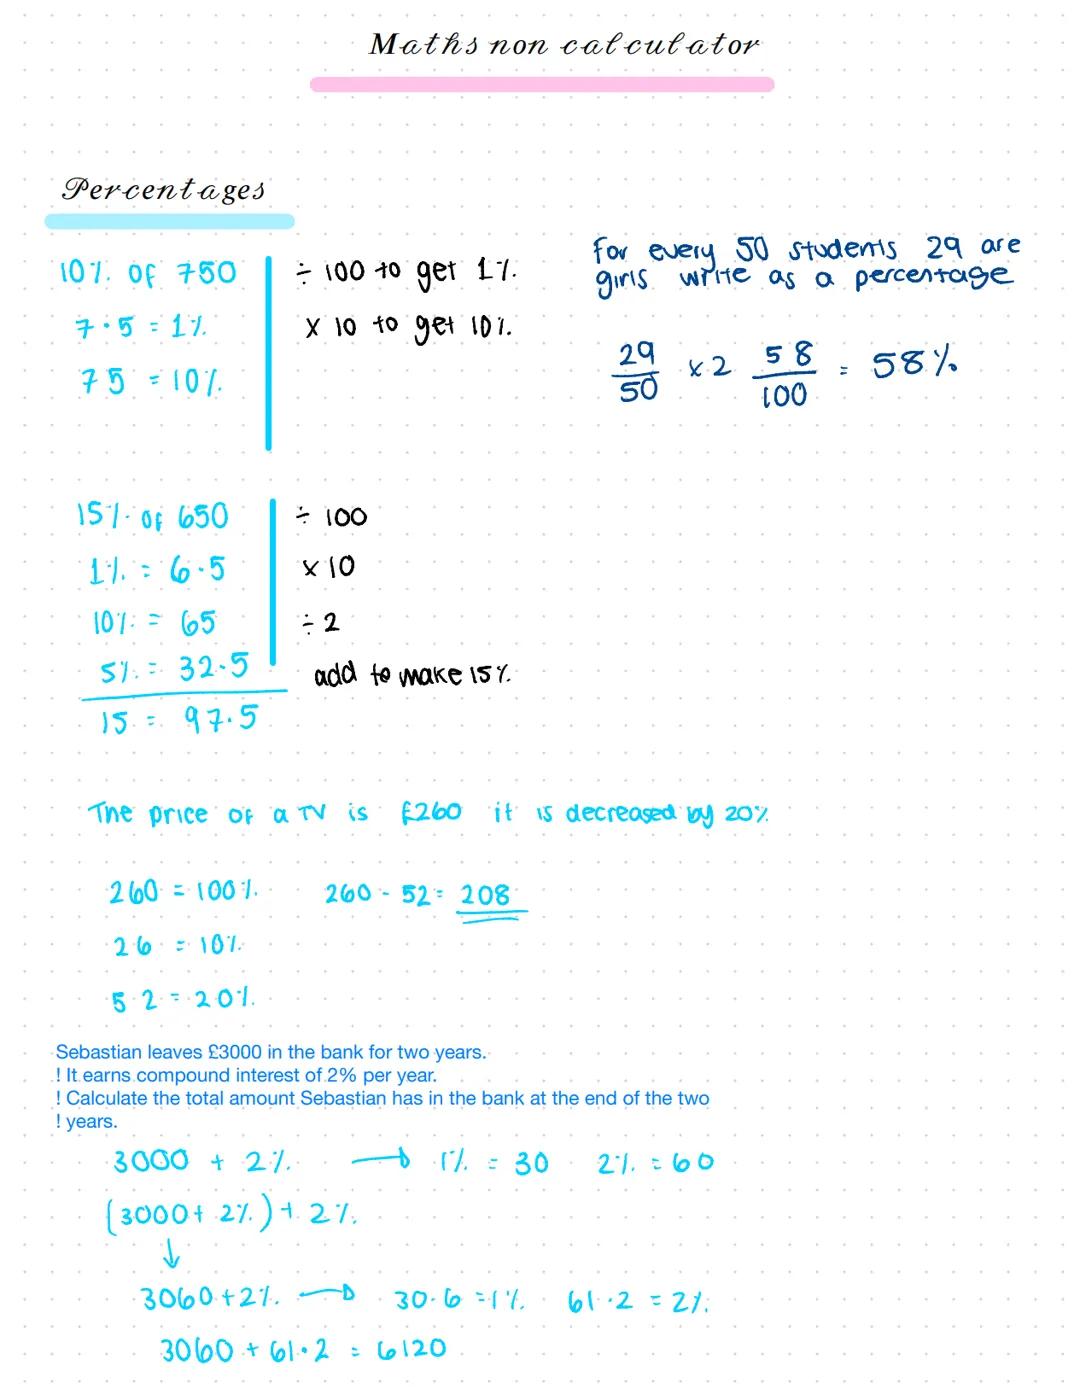 Maths non calculator
Percentages
10% of 750
÷ 100 to get 1%.
7.5 = 1%
x 10 to get 10%.
75 = 10%.
For every 50 students 29 are
girls write as a percentage
29/50 x2 58/100 = 58%
15% of 650
÷ 100
1% = 6.5
x 10
10% = 65
÷ 2
5% = 32.5
add to make 15%.
15 = 97.5
The price of a TV is £260 it is decreased by 20%
260 = 100%.
260 - 52 = 208
26 = 10%.
52 = 20%.
Sebastian leaves £3000 in the bank for two years.
! It earns compound interest of 2% per year.
! Calculate the total amount Sebastian has in the bank at the end of the two
! years.
3000 + 2%. → 1% = 30 2% = 60
(3000 + 2%) + 2%.
↓
3060 + 2%. → 30.6 = 1% 61.2 = 2%.
3060 + 61.2 = 6120